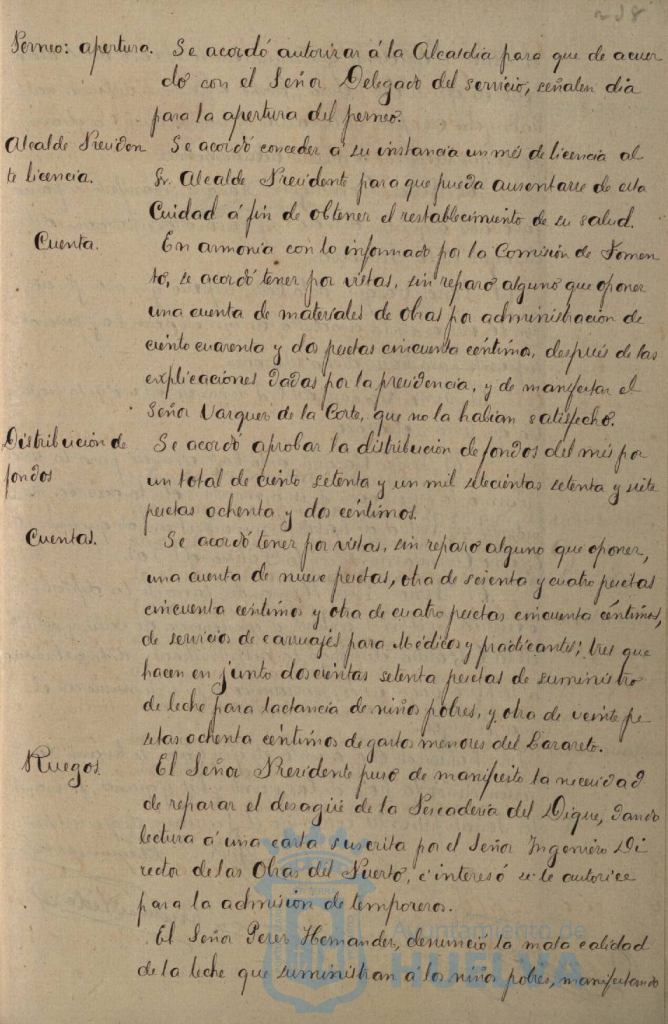 238
Perneo: apertura. Se acordó autorizar á la Alcaldia para que de acuer
do con el Señor Delegado del servicio, señalen dia
para la apertura del perneo.
Alcalde Presiden Se acordó conceder á su instancia un més de licencia al
te licencia. Sr. Alcalde Presidente para que pueda ausentarse de esta
Cuidad á fin de obtener el restablecimiento de su salud.
Cuenta. En armonia con lo informado por la Comisión de Fomen
to, se acordó tener por vistas, sin reparo alguno que oponer
una cuenta de materiales de obras por administración de
ciento cuarenta y dos pesetas cincuenta céntimos, después de las
explicaciones dadas por la presidencia, y de manifestar el
Señor Vazquez de la Corte, que no la habian satisfecho.
Distribución de Se acordó aprobar la distribución de fondos del més por
fondos un total de ciento setenta y un mil setecientas setenta y siete
pesetas ochenta y dos céntimos.
Cuentas. Se acordó tener por vistas, sin reparo alguno que oponer,
una cuenta de nueve pesetas, otra de sesenta y cuatro pesetas
cincuenta céntimos y otra de cuatro pesetas cincuenta céntimos,
de servicios de carruajes para Médicos y practicantes; tres que
hacen en junto doscientas setenta pesetas de suministro
de leche para lactancia de niños pobres, y otra de veinte pe
setas ochenta céntimos de gastos menores del Lazareto.
Ruegos. El Señor Presidente puso de manifiesto la necesidad
de reparar el desagüe de la Pescaderia del Dique, dando
lectura á una carta suscrita por el Señor Ingeniero Di
rector de las Obras del Puerto, é interesó se le autorice
para la admisión de temporeros.
El Señor Perez Hernandez, denunció la mala calidad
de la leche que suministran á los niños pobres, manifestando
Ayuntamiento de
HUELVA